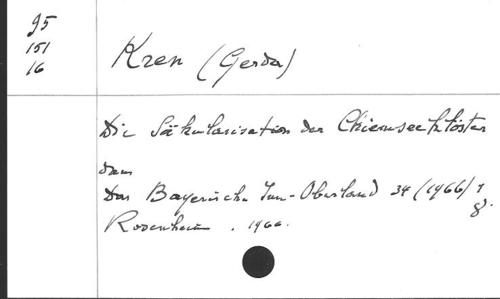 95
151
16
Kren (Gerda)
Die Säkularisation der Chiemseeklöster
dans
Das Bayerische Inn-Oberland 34 (1966)
Rosenheim. 1966.